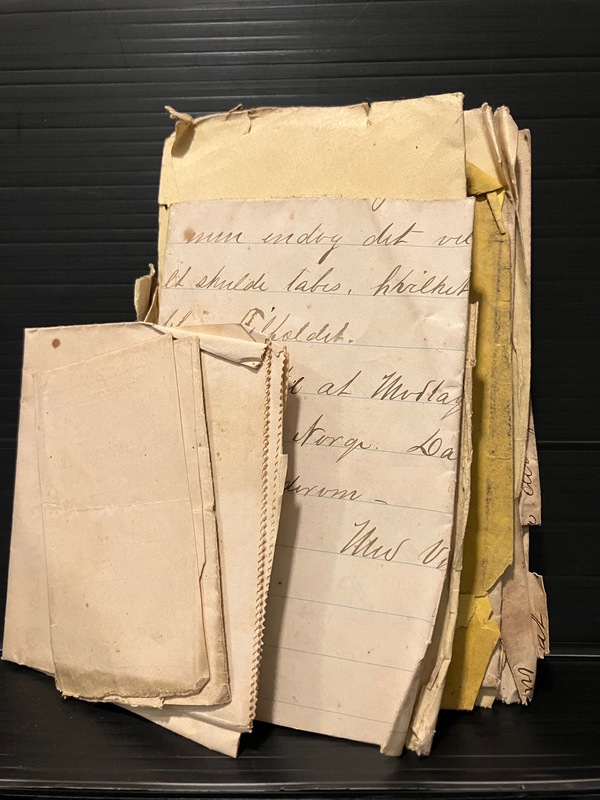 men endog det vil
lt skulde tabes. hvilket
holdet.
at Modtag
Norge. Da
derom –
Med V
at